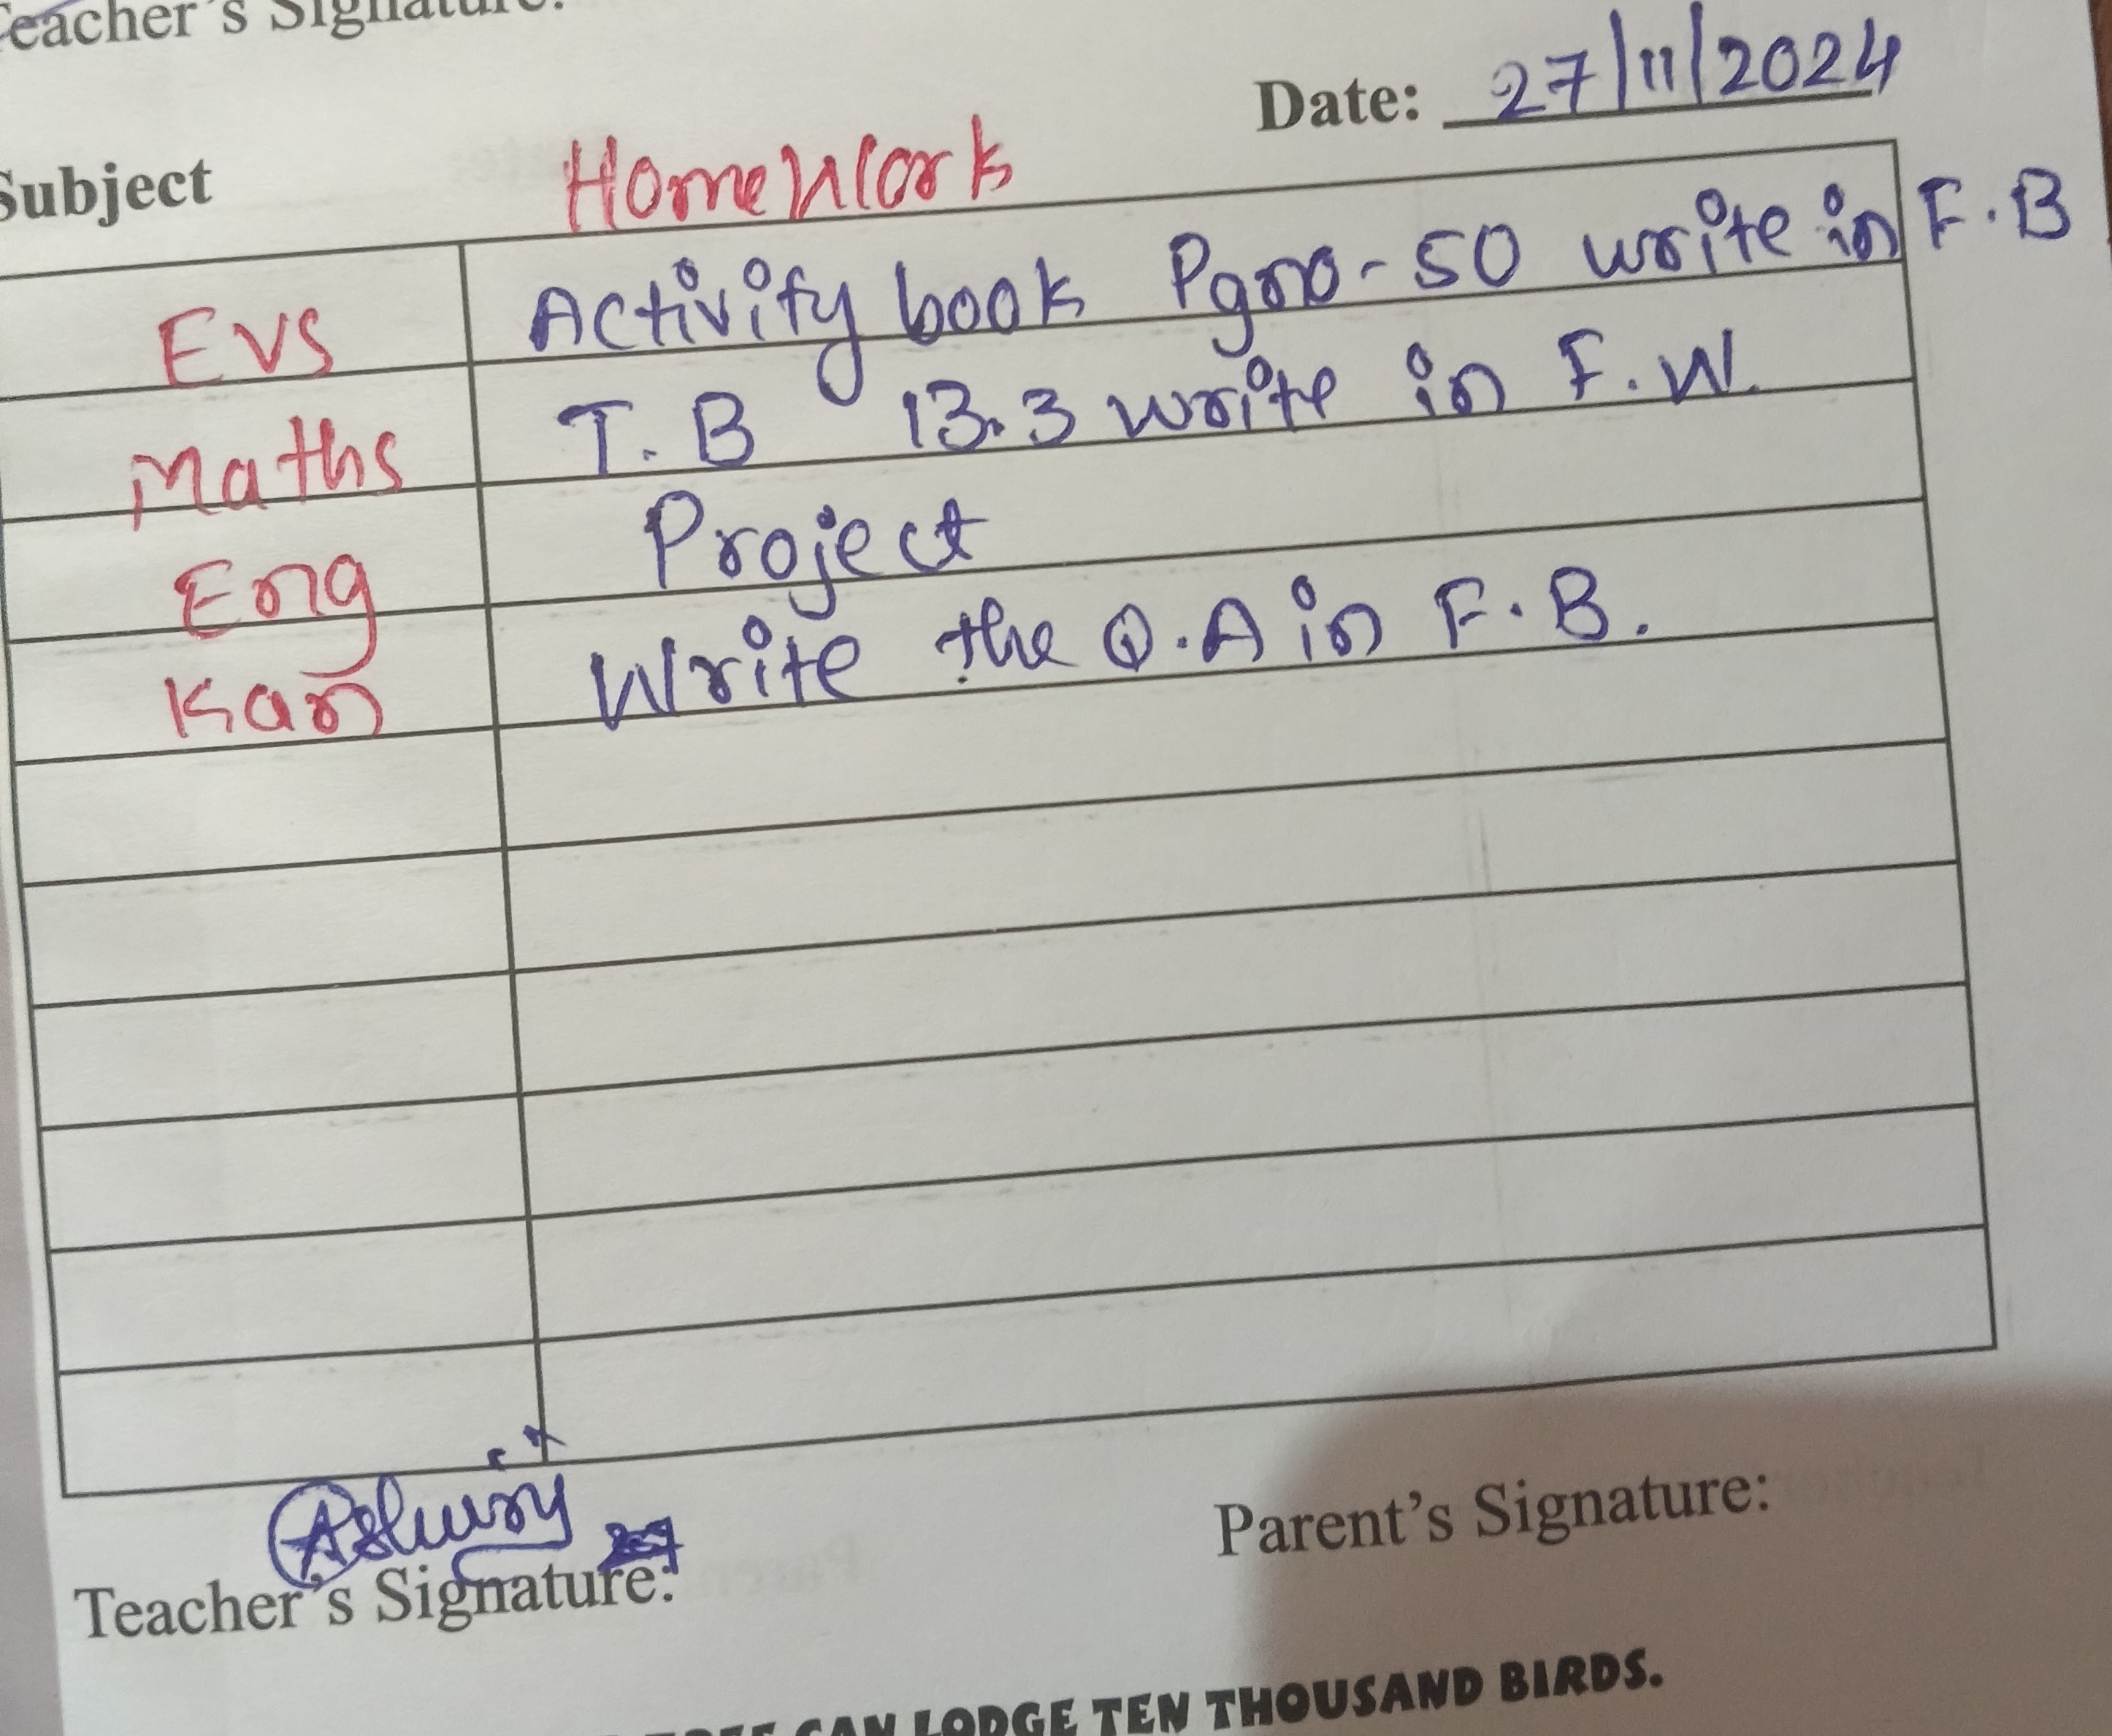 Teacher's Signature:
Date: 27/11/2024
Subject Homework
EVS Activity book Pgno-50 write in F.B
Maths T.B 13.3 write in F.W.
Eng Project
Kan Write the Q.A in F.B.
Teacher's Signature:
Parent's Signature:
CAN LODGE TEN THOUSAND BIRDS.